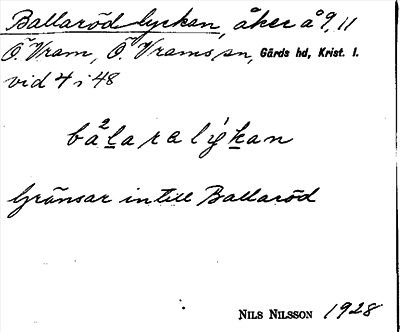 Ballaröd lyckan, åker å 9, 11
Ö. Vram, Ö. Vrams sn, Gärds hd, Krist. l.
vid 4 i 48
Gränsar intill Ballaröd
NILS NILSSON 1928